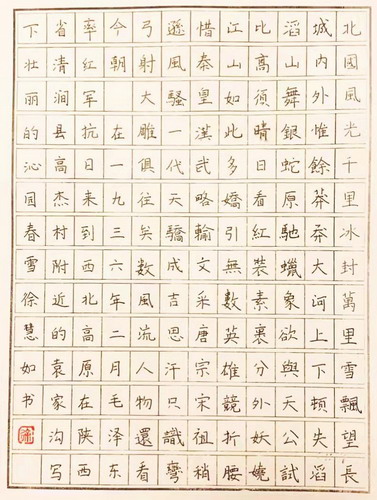 北國風光千里冰封萬里雪飄望長
城內外惟餘莽莽大河上下頓失滔
滔山舞銀蛇原馳蠟象欲與天公試
比高須晴日看紅裝素裹分外妖嬈
江山如此多嬌引無數英雄競折腰
惜秦皇漢武略輸文采唐宗宋祖稍
遜風騷一代天驕成吉思汗只識彎
弓射大雕俱往矣數風流人物還看
今朝 在一九三六年二月毛泽东
率紅軍抗日来到西北高原在陕西
省清涧县高杰村附近的袁家沟写
下壮丽的沁园春雪徐慧如书